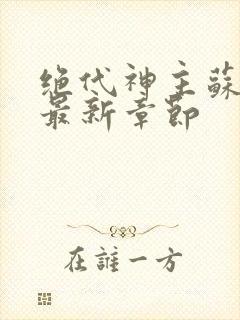 绝代神主蘇
最新章節
在誰一方